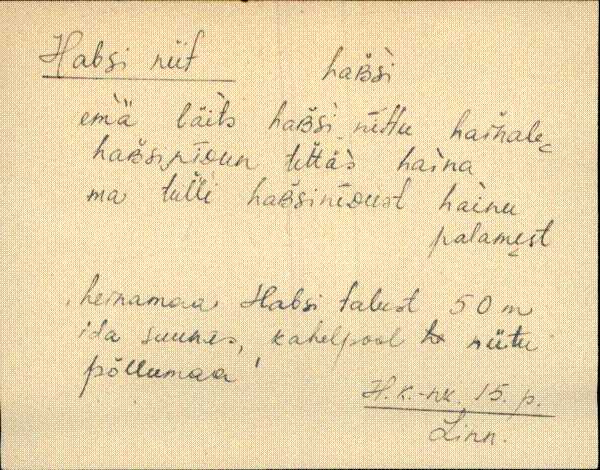 Habsi niit haʙ̀si
emä läìts haʙ̀si niттu haìnale
haʙ̀siniᴅun tettäs haìna
ma tulli haʙ̀siniᴅust hàinu
palamest
heinamaa Habsi talust 50 m
ida suunas, kahelpool niitu
põllumaa
H.k.-nk. 15. p.
Linn.